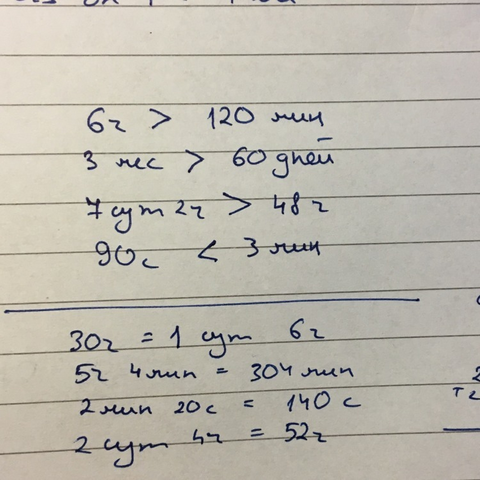 6ч > 120 мин
3 мес > 60 дней
7 сут 2ч > 48 ч
90с < 3 мин
30ч = 1 сут 6ч
5ч 4мин = 304 мин
2 мин 20с = 140 с
2 сут 4ч = 52ч